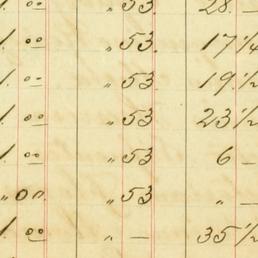 1. 00 " 53 28. —
1. 00 " 53. 17 1/4
1. 00 " 53 19 1/2
1. 00 " 53 23 1/2
1. 00 " 53 6 —
" 00. " 53 " —
1. 00 " — 35 1/2